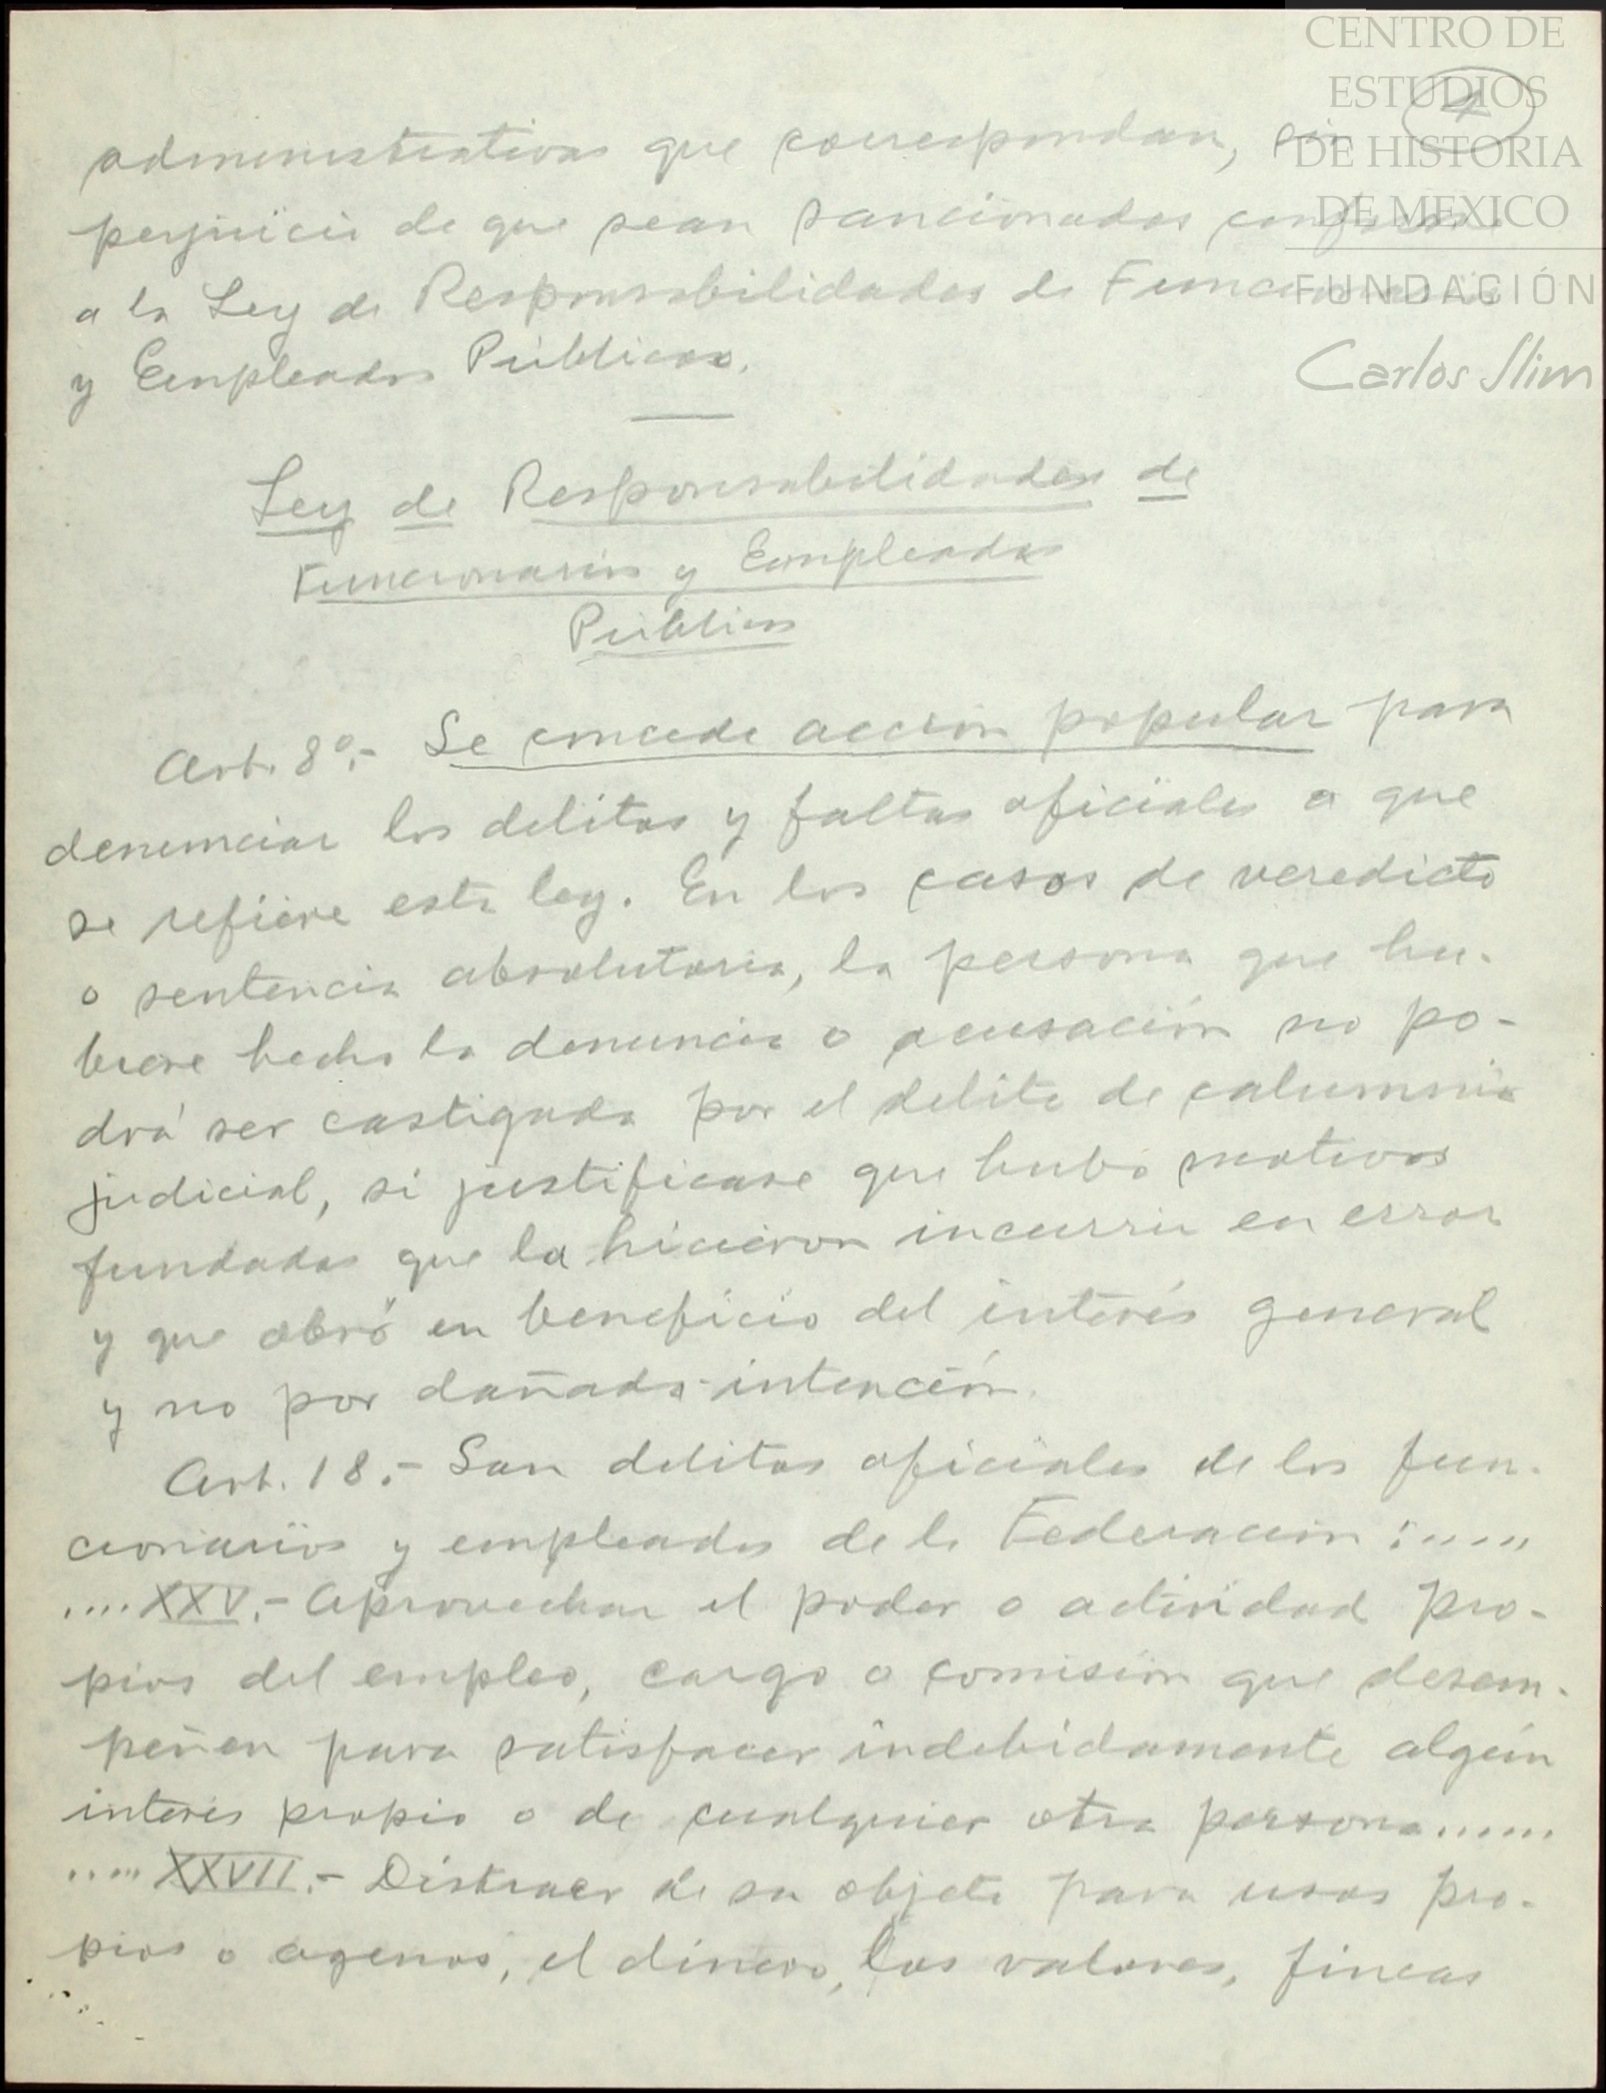 CENTRO DE
ESTUDIOS
DE HISTORIA
DE MEXICO
FUNDACIÓN
Carlos Slim
4
administrativas que correspondan, sin
perjuicio de que sean sancionados conforme
a la Ley de Responsabilidades de Funcionarios
y Empleados Públicos.
Ley de Responsabilidades de
Funcionarios y Empleados
Públicos
Art. 8º.- Se concede acción popular para
denunciar los delitos y faltas oficiales a que
se refiere esta ley. En los casos de veredicto
o sentencia absolutoria, la persona que hu-
biere hecho la denuncia o acusación no po-
drá ser castigada por el delito de calumnia
judicial, si justificase que hubo motivos
fundados que la hicieron incurrir en error
y que obró en beneficio del interés general
y no por dañada intención.
Art. 18.- Son delitos oficiales de los fun-
cionarios y empleados de la Federación:.....
....XXV.- Aprovechar el poder o actividad pro-
pios del empleo, cargo o comisión que desem-
peñen para satisfacer indebidamente algún
interés propio o de cualquier otra persona......
.....XXVII.- Distraer de su objeto para usos pro-
pios o agenos, el dinero, los valores, fincas